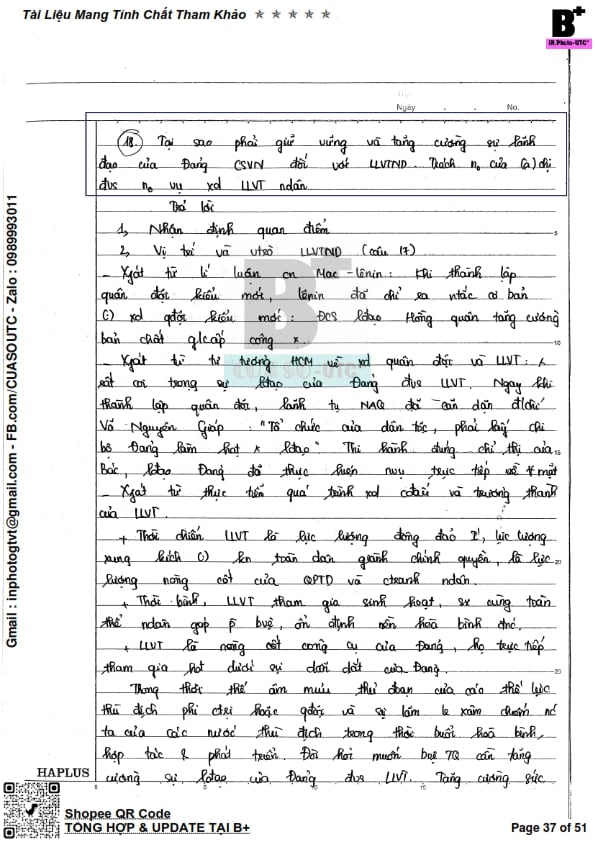 Tài Liệu Mang Tính Chất Tham Khảo ★ ★ ★ ★ ★
B+
IN.Photo-UTC
Ngày . . No.
18. Tại sao phải giữ vững và tăng cường sự lãnh
đạo của Đảng CSVN đối với LLVTND. Trách no của (a) chị
đvs no vụ xd LLVT ndân
Trả lời
1, Nhận định quan điểm
2, Vị trí và vtrò LLVTND (câu 17)
- Xphát từ lí luận cn Mac-lênin: Khi thành lập
quân đội kiểu mới, lênin đã chỉ ra ntắc cơ bản
xd qđội kiểu mới: ĐCS lđạo Hồng quân tăng cường
bản chất glcấp công x.
- Xphát từ tư tương HCM về xd quân đội và LLVT: x
coi trọng sự lđạo của Đảng đvs LLVT. Ngay khi
thành lập quân đội, lãnh tụ NAQ đã căn dặn đ/chí
Võ Nguyên Giáp: "Tổ chức của dân tộc, phải lấy chi
bộ Đảng làm hạt x lđạo" Thi hành đúng chỉ thị của
Bác, lđạo Đảng đã thực hiện nvụ trực tiếp về mặt
- Xphát từ thực tiễn quá trình xd cđấu và trưởng thành
của LLVT.
+ Thời chiến LLVT là lực lượng đông đảo I', lực lượng
xung kích kn toàn dân giành chính quyền, là lực
lượng nòng cốt của QPTD và ctranh ndân.
+ Thời bình, LLVT tham gia sinh hoạt, sx cùng toàn
thể ndân góp p bvệ, ổn định nền hoà bình đnc.
+ LLVT là nòng cốt công cụ của Đảng, họ trực tiếp
tham gia hđt dưới sự dẫn dắt của Đảng.
Trong thời thế âm mưu thủ đoạn của các thế lực
thù địch phi ctrị hoặc qđội và sự lăm le xâm chiếm nc
ta của các nước thù địch trong thời buổi hoà bình
hợp tác & phát triển. Đòi hỏi muốn bvệ TQ cần tăng
cường sự lđạo của Đảng đvs LLVT. Tăng cường sức
5
10
15
20
25
CUASO-UTC
Gmail : inphotogtvt@gmail.com - FB.com/CUASOUTC - Zalo : 0989993011
HAPLUS
0 5 10
Shopee QR Code
TỔNG HỢP & UPDATE TẠI B+
Page 37 of 51